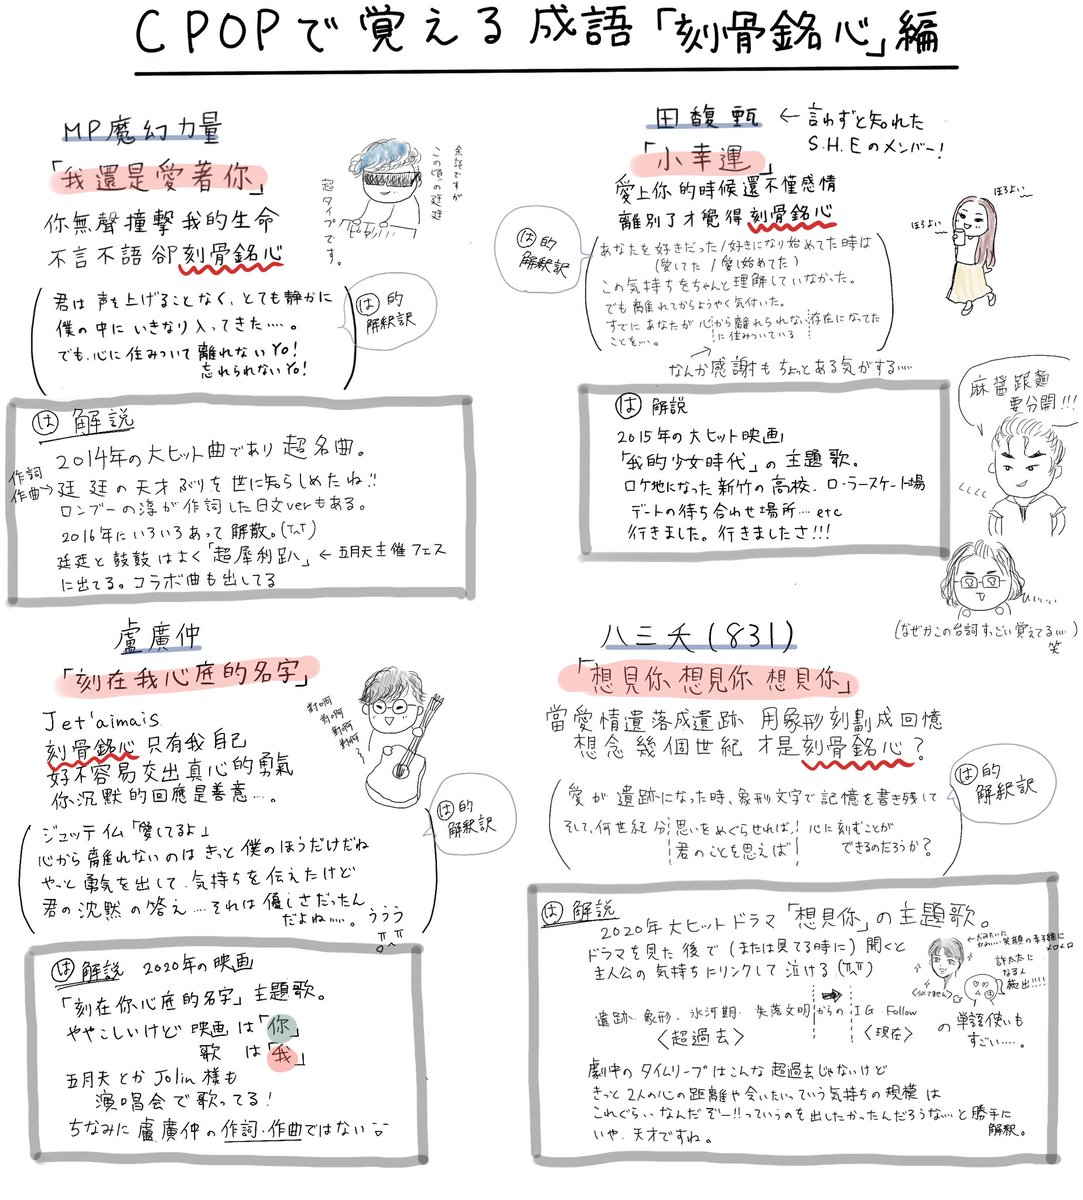 CPOPで覚える成語「刻骨銘心」編
MP魔幻力量
「我還是愛著你」
你無聲撞擊我的生命
不言不語卻刻骨銘心
余談ですが
この頃の廷廷
超タイプです。
君は声を上げることなく、とても静かに
僕の中にいきなり入ってきた….。
でも、心に住みついて離れないYo!
忘れられないYo!
は的
解釈訳
は 解説
2014年の大ヒット曲であり超名曲。
作詞
作曲→
廷廷の天才ぶりを世に知らしめたね!!
ロンブーの淳が作詞した日文verもある。
2016年にいろいろあって解散。(TnT)
廷廷と鼓鼓はよく「超犀利趴」←五月天主催フェス
に出てる。コラボ曲も出してる
田馥甄 ← 言わずと知れた
S.H.Eのメンバー!
「小幸運」
愛上你的時候還不懂感情
離別了才覺得刻骨銘心
ほろよい
ほろよい
は的
解釈訳
あなたを好きだった/好きになり始めてた時は
(愛してた/愛し始めてた)
この気持ちをちゃんと理解していなかった。
でも離れてからようやく気付いた。
すでにあなたが心から離れられない存在になってた
に住みついている
ことを….。
なんか感謝もちょっとある気がする….
は 解説
2015年の大ヒット映画
「我的少女時代」の主題歌。
ロケ地になった新竹の高校、ローラースケート場
デートの待ち合わせ場所…etc
行きました。行きましたさ!!!
麻醬跟麵
要分開!!!
(なぜかこの台詞すっごい覚えてる….)
笑
盧廣仲
「刻在我心底的名字」
Je t'aimais
刻骨銘心只有我自己
好不容易交出真心的勇氣
你沉默的回應是善意….
對啊
對啊
對啊
對啊
は的
解釈訳
ジュッテイム「愛してるよ」
心から離れないのはきっと僕のほうだけだね
やっと勇気を出して、気持ちを伝えたけど
君の沈黙の答え….それは優しさだったん
だよね….。
ううう
は 解説 2020年の映画
「刻在你心底的名字」主題歌。
ややこしいけど 映画は「你」
歌は「我」
五月天とかJolin様も
演唱会で歌ってる!
ちなみに盧廣仲の作詞・作曲ではない
八三夭(831)
「想見你想見你想見你」
當愛情遺落成遺跡 用象形刻劃成回憶
想念幾個世紀 才是刻骨銘心?
は的
解釈訳
愛が遺跡になった時、象形文字で記憶を書き残して
そして、何世紀分 思いをめぐらせれば、 心に刻むことが
君のことを思えば できるのだろうか?
は 解説
2020年大ヒットドラマ「想見你」の主題歌。
ドラマを見た後で(または見てる時に)聞くと
主人公の気持ちにリンクして泣ける(TT)
許太太に
なる人
続出!!!!
<似てません>
遺跡・象形・氷河期・失落文明からの IG・Follow
<超過去> <現在>
の単語使いも
すごい….。
劇中のタイムリープはこんな超過去じゃないけど
きっと2人の心の距離や会いたいっていう気持ちの規模は
これぐらいなんだぞー!!っていうのを出したかったんだろうな…と勝手に
解釈。
いや、天才ですね。